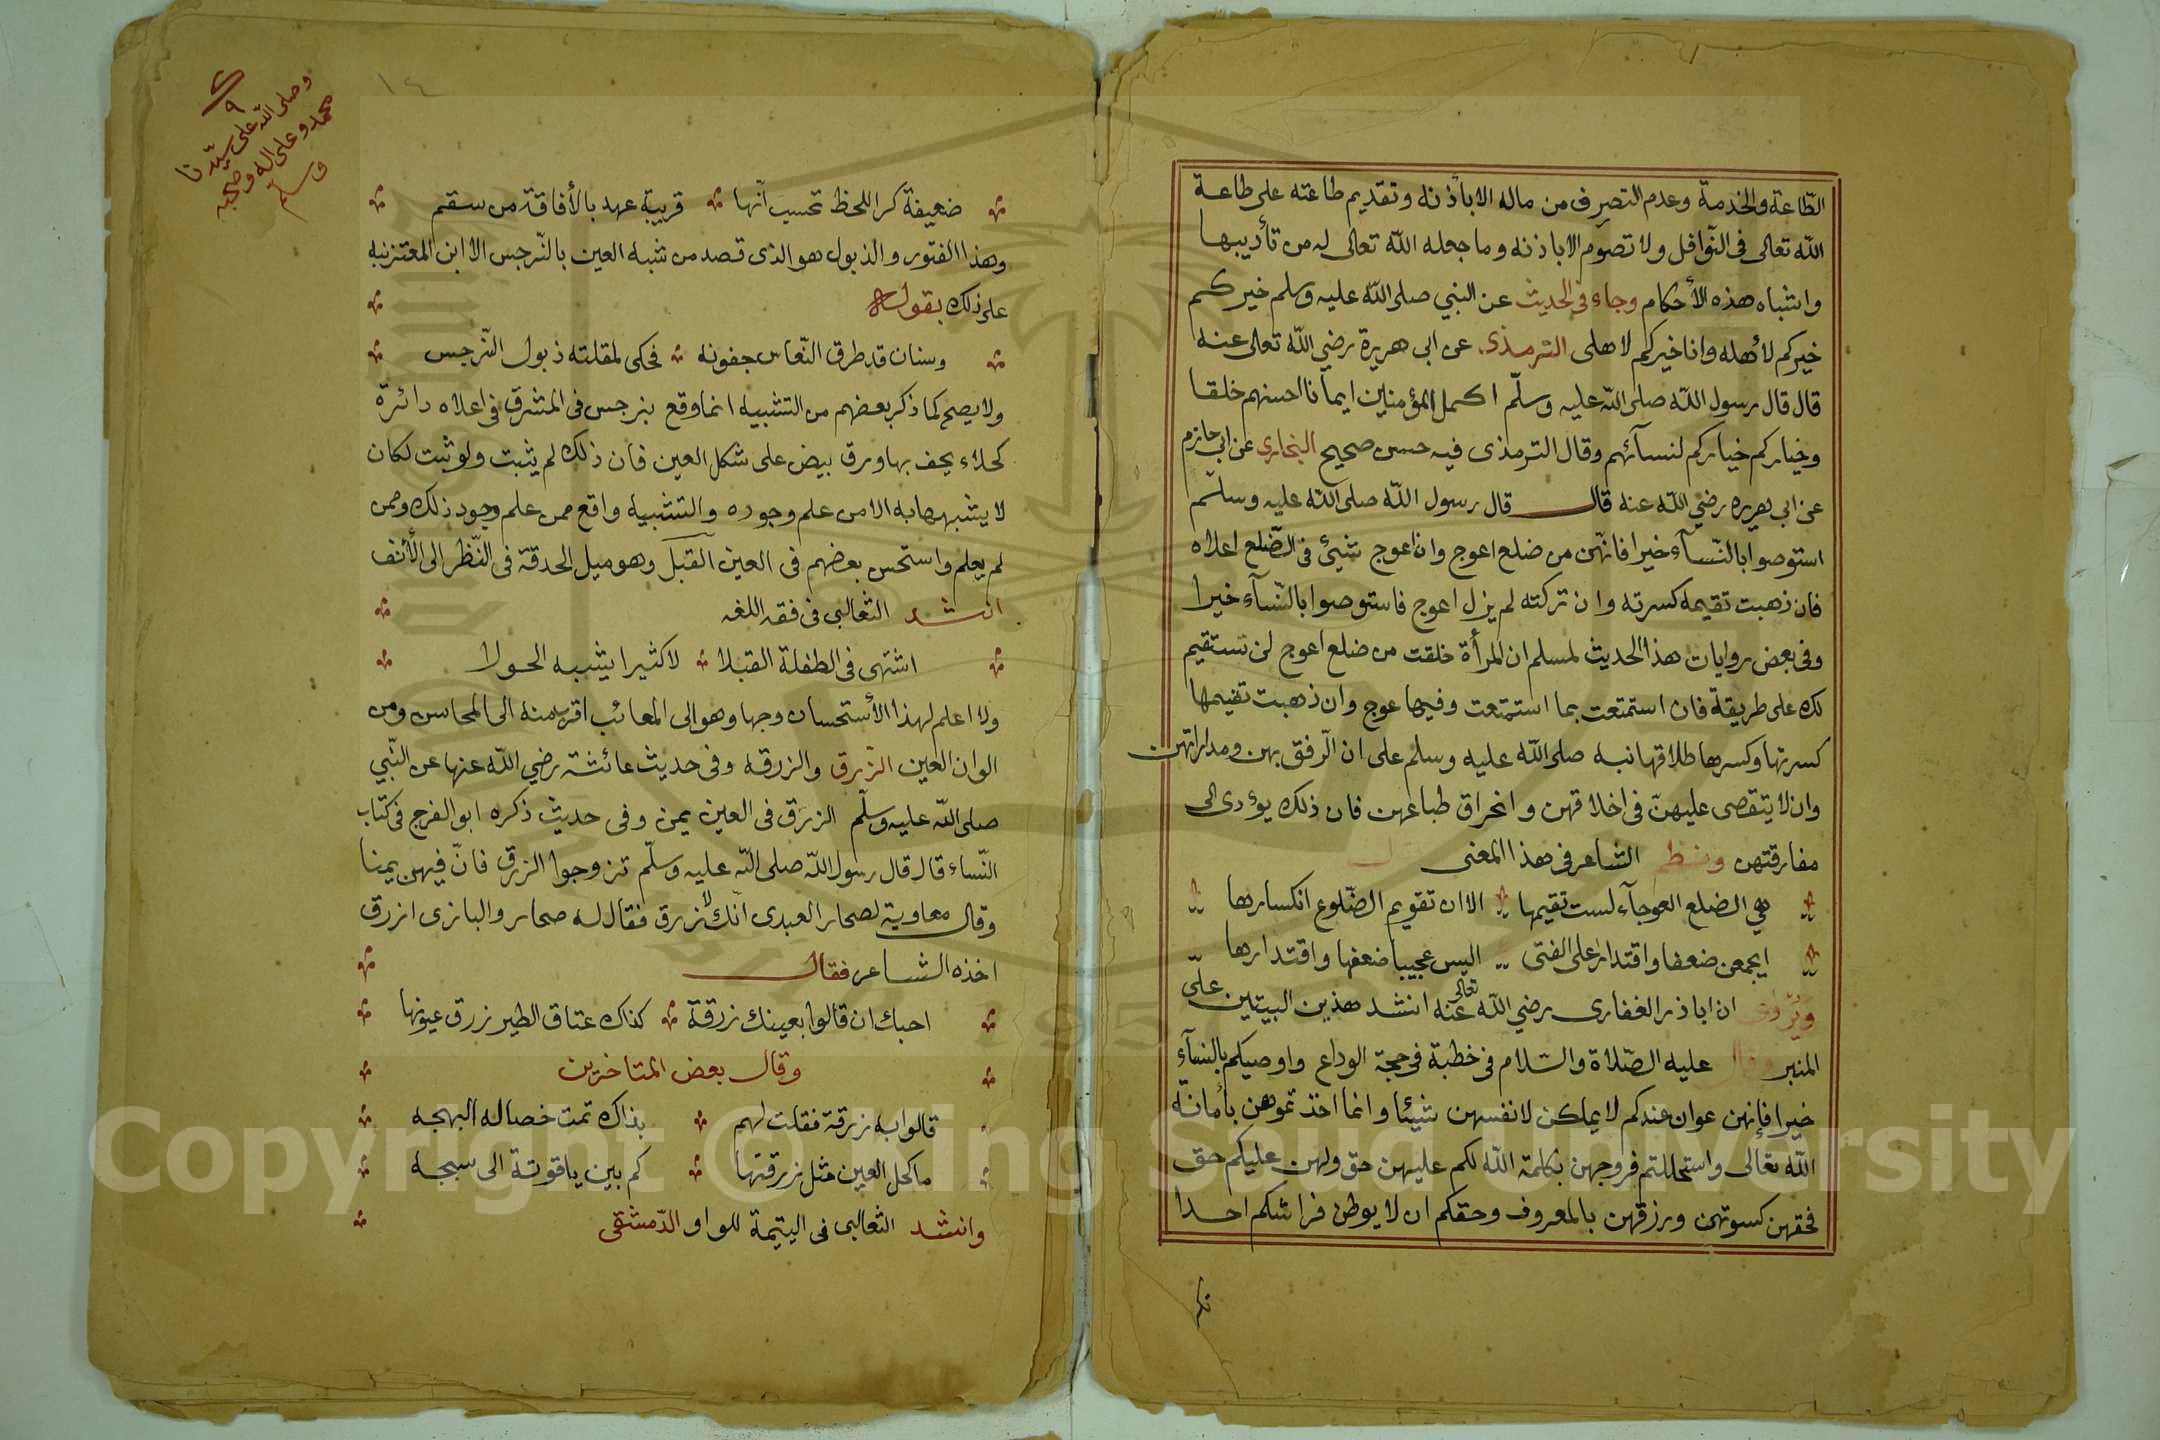 الطّاعة والخدمة وعدم التصرف من ماله الا باذنه وتقديم طاعته على طاعة
اللّه تعالى فى النّوافل ولا تصوم الا باذنه وما جعله اللّه تعالى له من تأديبها
واشباه هذه الأحكام وجاء فى الحديث عن النبي صلى اللّه عليه وسلم خيركم
خيركم لأهله وانا خيركم لاهلى الترمذى عن ابى هريرة رضي اللّه تعالى عنه
قال قال رسول اللّه صلى اللّه عليه وسلّم اكمل المؤمنين ايمانا احسنهم خلقا
وخياركم خياركم لنسآئهم وقال الترمذى فيه حسن صحيح البخارى عن ابى حازم
عن ابى هريره رضي اللّه عنه قال قال رسول اللّه صلى اللّه عليه وسلّم
استوصوا بالنّسآء خيرا فانهّن من ضلع اعوج وان اعوج شيئ فى الضّلع اعلاه
فان ذهبت تقيمه كسرته وان تركته لم يزل اعوج فاستوصوا بالنّسآء خيرا
وفى بعض روايات هذا الحديث لمسلم ان المرأة خلقت من ضلع اعوج لن تستقيم
لك على طريقة فان استمتعت بها استمتعت وفيها عوج وان ذهبت تقيمها
كسرتها وكسرها طلاقها نبه صلى اللّه عليه وسلم على ان الرّفق بهن ومداراتهن
وان لا يتقصى عليهنّ فى اخلاقهن وانحراق طباعهن فان ذلك يؤدى الى
مفارقتهن ونظم الشاعر فى هذا المعنى
هي الضلع العوجآء لست تقيمها الا ان تقويم الضّلوع انكسارها
ايجمعن ضعفا واقتدارا على الفتى اليس عجيبا ضعفها واقتدارها
ويُروٰى ان ابا ذر الغفارى رضي اللّه تعالى عنه انشد هذين البيتين علىّ
المنبر وقال عليه الصّلاة والسّلام فى خطبة فى حجة الوداع واوصيكم بالنسآء
خيرا فإنهن عوان عندكم لا يملكن لانفسهن شيئا وانما اخذتموهن بأمانة
اللّه تعالى واستحللتم فروجهن بكلمة اللّه لكم عليهن حق ولهن عليكم حق
فحقهن كسوتهن ورزقهن بالمعروف وحقكم ان لا يوطن فراشكم احدا
١٤
وصلى اللّه على سيّدنا
محمد وعلى اله وصحبه
وسلّم
ضعيفة كر اللحظ تحسب أنّها قريبة عهد بالأفاقة من سقم
وهذا الفتور والذبول هو الذى قصد من شبه العين بالنّرجس الا ابن المعتز نبه
على ذلك بقوله
وسنان قد طرق النّعاس جفونه فحكى لمقلته ذبول النّرجس
ولا يصح كما ذكر بعضهم من التشبيه انما وقع بنرجس فى المشرق فى اعلاه دائرة
كحلاء يحف بها ورق بيض على شكل العين فان ذلك لم يثبت ولو ثبت لكان
لا يشبهها به الا من علم وجوده والتشبيه واقع ممن علم وجود ذلك وممن
لم يعلم واستحسن بعضهم فى العين القبل وهو ميل الحدقة فى النّظر الى الأنف
انشد الثعالبى فى فقه اللغه
اشتهى فى الطفلة القبلا لا كثيرا يشبه الحولا
ولا اعلم لهذا الأستحسان وجها وهو الى المعائب اقرب منه الى المحاسن ومن
الوان العين الزّرق والزرقه وفى حديث عائشة رضي اللّه عنها عن النّبي
صلى اللّه عليه وسلّم الزرق فى العين يمن وفى حديث ذكره ابو الفرج فى كتاب
النّساء قال قال رسول اللّه صلى اللّه عليه وسلّم تزوجوا الزرق فانّ فيهن يمنا
وقال معاوية لصحار العبدى انّك لازرق فقال له صحار والبازى ازرق
اخذه الشاعر فقال
احبك ان قالوا بعينك زرقة كذاك عتاق الطير زرق عيونها
وقال بعض المتاخرين
قالوا به زرقة فقلت لهم بذاك تمت خصاله البهجه
ما كحل العين مثل زرقتها كم بين ياقوتة الى سبجه
وانشد الثعالبى فى اليتيمة للواو الدّمشقى
Copyright © King Saud University